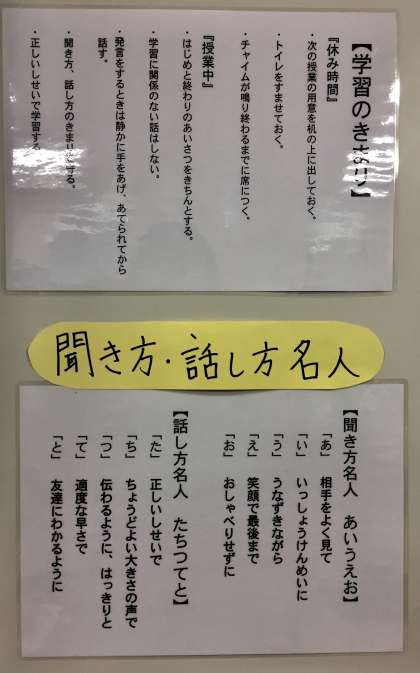 【学習のきまり】
『休み時間』
・次の授業の用意を机の上に出しておく。
・トイレをすませておく。
・チャイムが鳴り終わるまでに席につく。
『授業中』
・はじめと終わりのあいさつをきちんとする。
・学習に関係のない話はしない。
・発言をするときは静かに手をあげ、あてられてから
話す。
・聞き方、話し方のきまりを守る。
・正しいしせいで学習する
聞き方・話し方名人
【聞き方名人 あいうえお】
「あ」 相手をよく見て
「い」 いっしょうけんめいに
「う」 うなずきながら
「え」 笑顔で最後まで
「お」 おしゃべりせずに
【話し方名人 たちつてと】
「た」 正しいしせいで
「ち」 ちょうどよい大きさの声で
「つ」 伝わるように、はっきりと
「て」 適度な早さで
「と」 友達にわかるように